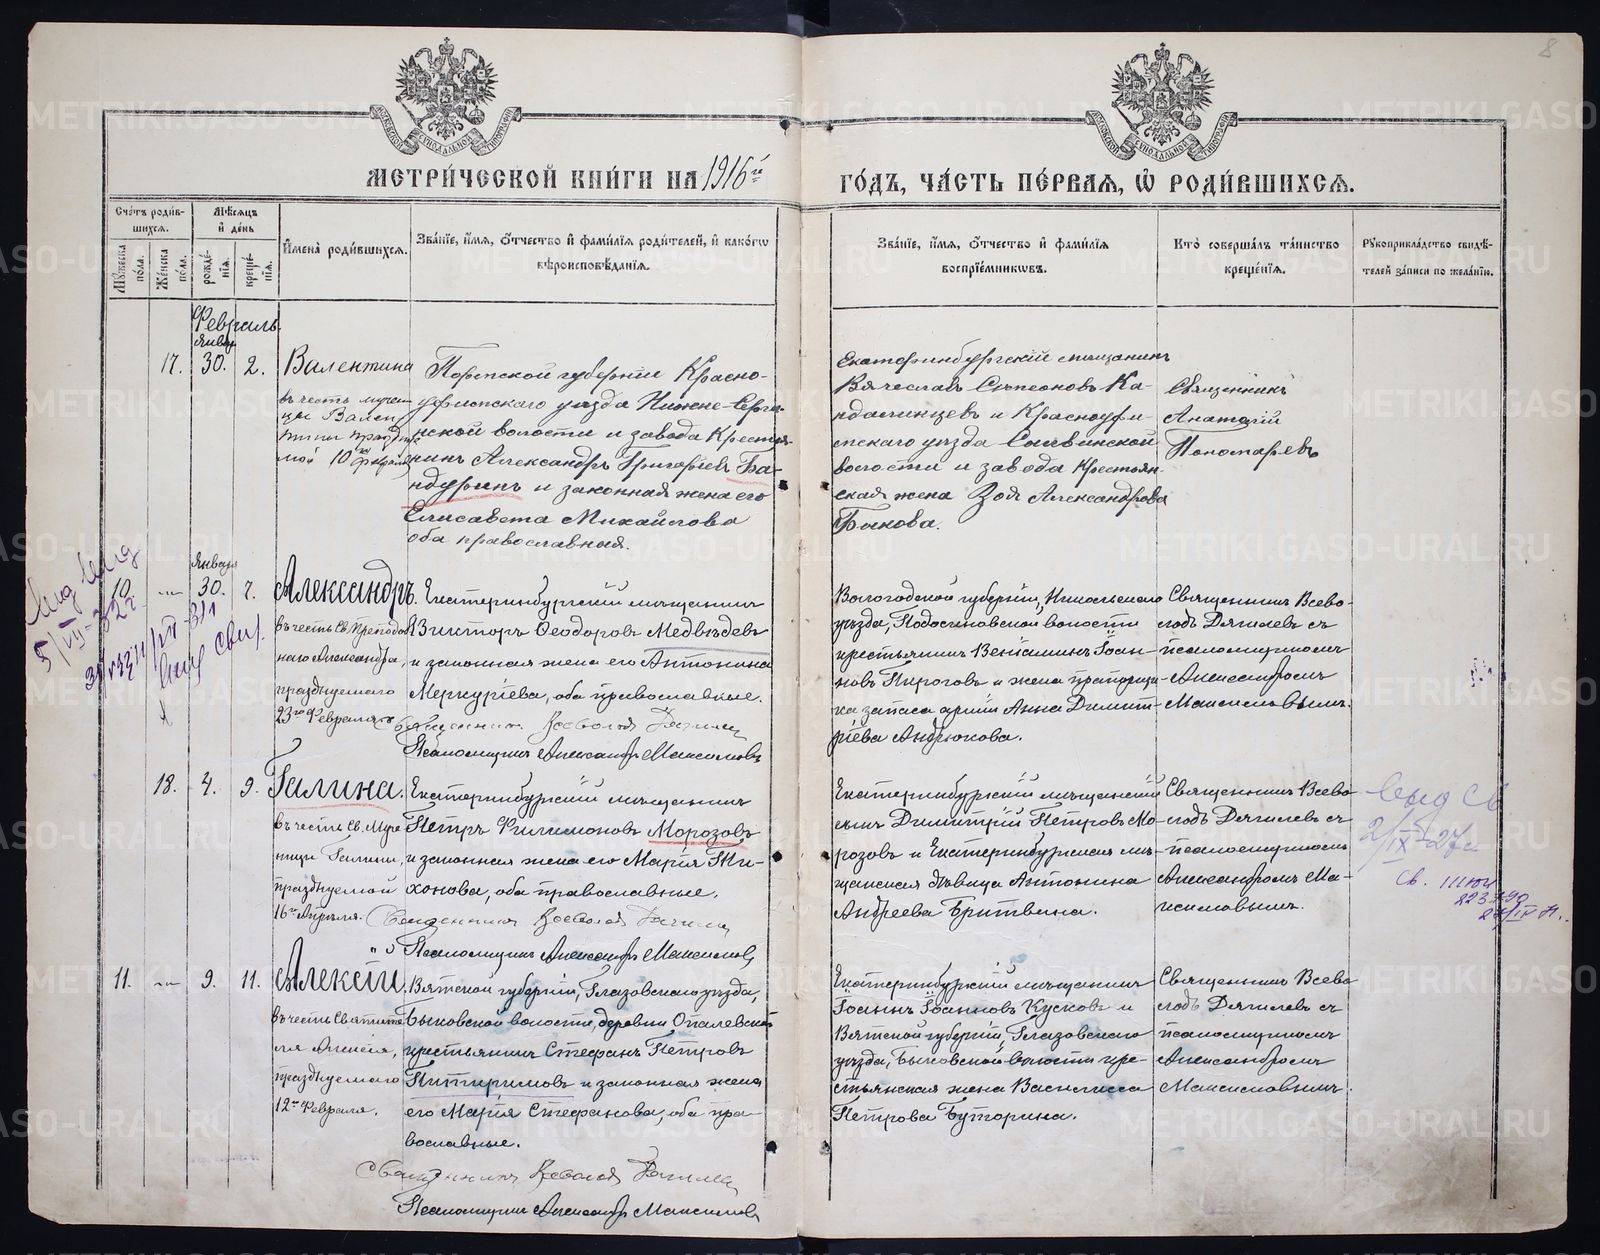 8
МЕТРИ́ЧЕСКОЙ КНИ́ГИ НА 1916й
ГО́ДЪ, ЧА́СТЬ ПЕ́РВАѦ, Ѽ РОДИ́ВШИХСѦ.
Сче́тъ роди́в-
шихсѧ.
Мѣ́сѧцъ
и҆ де́нь
Мꙋ́жеска по́ла.
Же́нска по́ла.
рожде́-
нїѧ.
креще́-
нїѧ.
И҆мена̀ роди́вшихсѧ.
Зва́нїе, и҆́мѧ, ѻ҆́тчество и҆ фамѝлїѧ роди́телей, и҆ како́гѡ
вѣроисповѣ́данїѧ.
Зва́нїе, и҆́мѧ, ѻ҆́тчество и҆ фамѝлїѧ
воспрїе́мникѡвъ.
Кто̀ соверша́лъ та́инство
креще́нїѧ.
Рꙋкоприкла́дство свидѣ́-
телей за́писи по жела́нїю.
Февраль
Январ
17. 30. 2. Валентина
въ честь мучени-
цы Вален
тины празднуе
мой 10го февраля
Пермской губерніи Красно-
уфимскаго уѣзда Нижне-Серги-
нской волости и завода Крестья-
нинъ Александръ Григорьевъ Ба-
ндуринъ и законная жена его
Елисавета Михайлова
оба православныя.
Екатеринбургскій мѣщанинъ
Вячеславъ Симеоновъ Ка-
ндалинцевъ и Красноуфи-
мскаго уѣзда Сылвинской
волости и завода Крестьян-
ская жена Зоя Александрова
Быкова.
Священникъ
Анатолій
Пономаревъ
Января
10 — 30. 7. Александръ.
въ честь Св. Преподоб
наго Александра,
празднуемаго
23го Февраля.
Екатеринбургскій мѣщанинъ
Викторъ Ѳеодоровъ Медвѣдевъ
и законная жена его Антонина
Меркуріева, оба православные.
Священникъ Всеволодъ Дягилевъ
Псаломщикъ Александръ Максимовъ
Вологодской губерніи, Никольскаго
уѣзда, Подосиновской волости
крестьянинъ Веніаминъ Іоан-
новъ Пироговъ и жена прапорщи-
ка запаса арміи Анна Димит-
ріева Андрюкова.
Священникъ Всево-
лодъ Дягилевъ съ
псаломщикомъ
Александромъ
Максимовымъ.
5/VII-32 г.
18. 4. 9. Галина.
въ честь Св. Муче
ницы Галины,
празднуемой
16го Апрѣля.
Екатеринбургскій мѣщанинъ
Петръ Филимоновъ Морозовъ
и законная жена его Марія Ти-
хонова, оба православные.
Священникъ Всеволодъ Дягилевъ
Псаломщикъ Александръ Максимовъ
Екатеринбургскій мѣщанскій
сынъ Димитрій Петровъ Мо-
розовъ и Екатеринбургская мѣ-
щанская дѣвица Антонина
Андреева Бритвина.
Священникъ Всево-
лодъ Дягилевъ съ
псаломщикомъ
Александромъ Ма-
ксимовымъ.
Выд св
2/IX-27г.
11. — 9. 11. Алексій.
въ честь Святите
ля Алексія,
празднуемаго
12го Февраля.
Вятской губерніи, Глазовскаго уѣзда,
Быковской волости, деревни Опалевской
крестьянинъ Стефанъ Петровъ
Питиримовъ и законная жена
его Марія Стефанова, оба пра-
вославные.
Священникъ Всеволодъ Дягилевъ
Псаломщикъ Александръ Максимовъ
Екатеринбургскій мѣщанинъ
Іоаннъ Іоанновъ Кусковъ и
Вятской губерніи, Глазовскаго
уѣзда, Быковской волости кре-
стьянская жена Василисса
Петрова Буторина.
Священникъ Всево-
лодъ Дягилевъ съ
псаломщикомъ
Александромъ
Максимовымъ.
METRIKI.GASO-URAL.RU